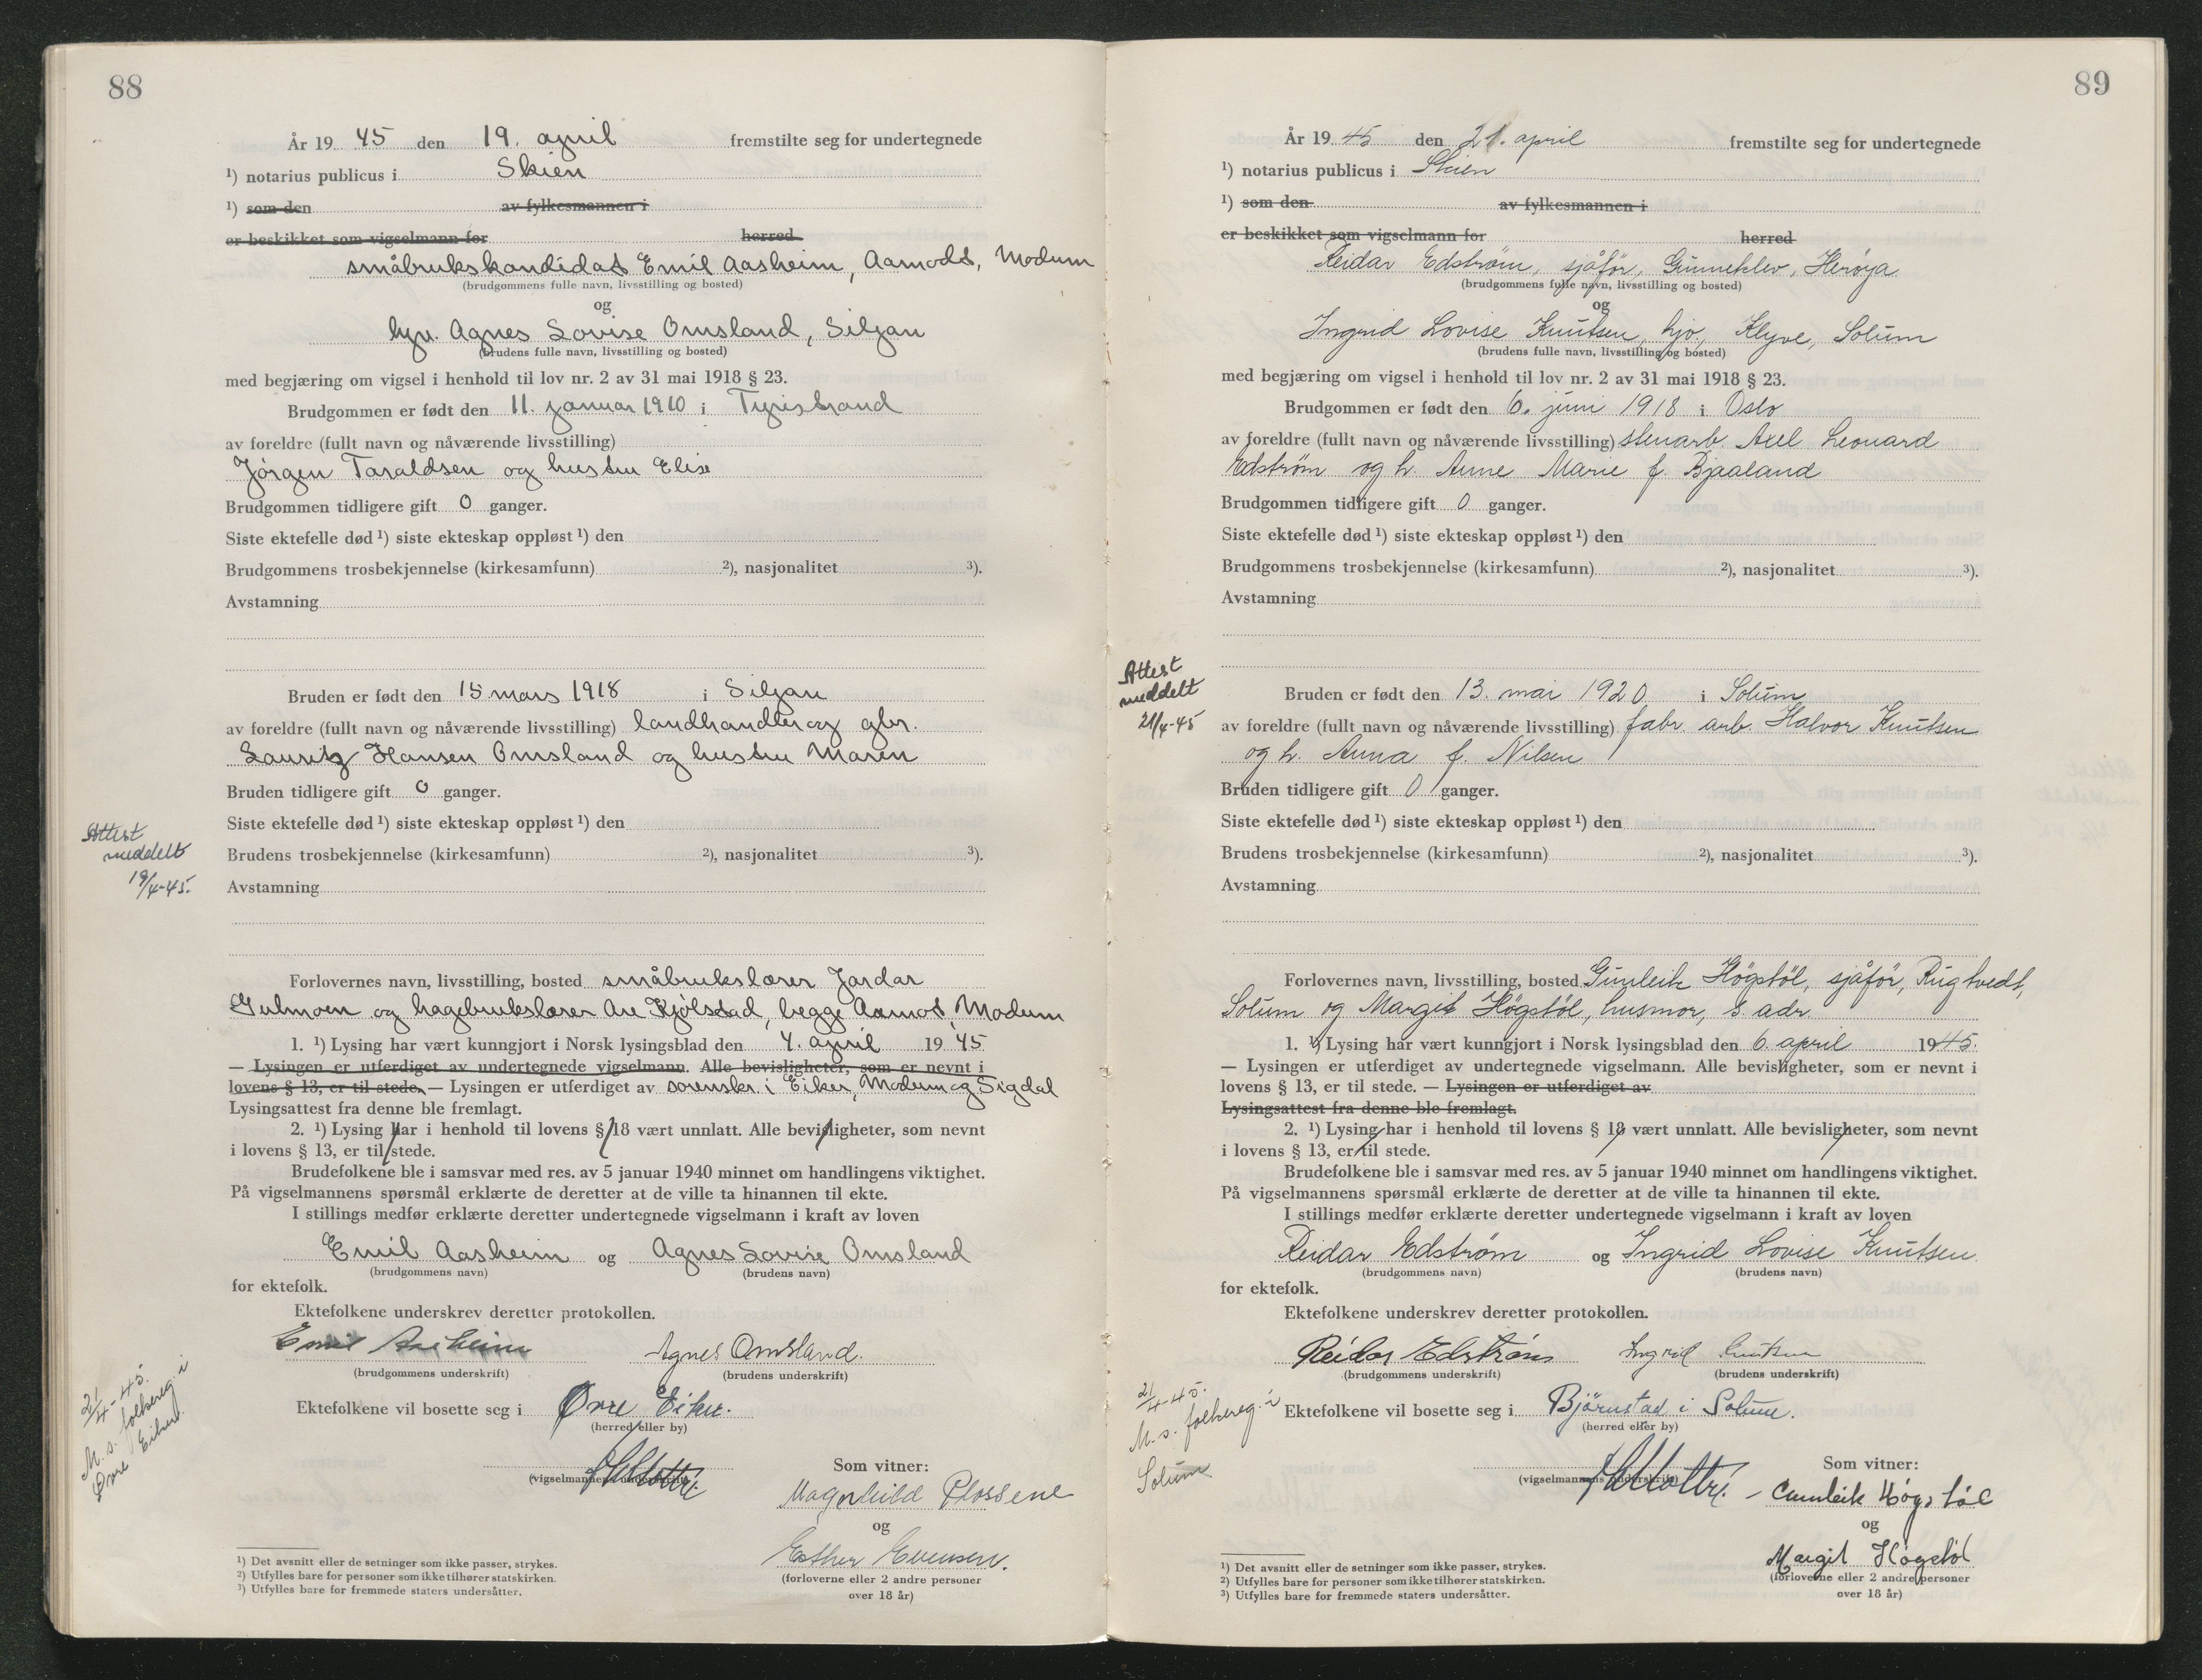 88
År 19 45 den 19. april fremstilte seg for undertegnede
¹) notarius publicus i Skien
¹) som den av fylkesmannen i
er beskikket som vigselmann for herred
småbrukskandidat Emil Aasheim, Aamodt, Modum
(brudgommens fulle navn, livsstilling og bosted)
og
Agnes Lovise Omsland, Siljan
(brudens fulle navn, livsstilling og bosted)
med begjæring om vigsel i henhold til lov nr. 2 av 31 mai 1918 § 23.
Brudgommen er født den 11. januar 1910 i Tyristrand
av foreldre (fullt navn og nåværende livsstilling)
Jörgen Taraldsen og hustru Elise
Brudgommen tidligere gift 0 ganger.
Siste ektefelle død ¹) siste ekteskap oppløst ¹) den
Brudgommens trosbekjennelse (kirkesamfunn) ²), nasjonalitet ³).
Avstamning
Bruden er født den 15 mars 1918 i Siljan
av foreldre (fullt navn og nåværende livsstilling) landhandler og gbr.
Lauritz Hansen Omsland og hustru Maren
Bruden tidligere gift 0 ganger.
Siste ektefelle død ¹) siste ekteskap oppløst ¹) den
Attest
meddelt
19/4-45.
Brudens trosbekjennelse (kirkesamfunn) ²), nasjonalitet ³).
Avstamning
Forlovernes navn, livsstilling, bosted småbrukslærer Jardar
Gulmoen og hagebrukslærer Are Kjölstad, begge Aamot, Modum
1. ¹) Lysing har vært kunngjort i Norsk lysingsblad den 4. april 19 45
— Lysingen er utferdiget av undertegnede vigselmann. Alle bevisligheter, som er nevnt i
lovens § 13, er til stede. — Lysingen er utferdiget av sorenskr. i Eiker, Modum og Sigdal
Lysingsattest fra denne ble fremlagt.
2. ¹) Lysing har i henhold til lovens § 18 vært unnlatt. Alle bevisligheter, som nevnt
i lovens § 13, er til stede.
Brudefolkene ble i samsvar med res. av 5 januar 1940 minnet om handlingens viktighet.
På vigselmannens spørsmål erklærte de deretter at de ville ta hinannen til ekte.
I stillings medfør erklærte deretter undertegnede vigselmann i kraft av loven
Emil Aasheim og Agnes Lovise Omsland
(brudgommens navn) (brudens navn)
for ektefolk.
Ektefolkene underskrev deretter protokollen.
Emil Aasheim Agnes Omsland.
(brudgommens underskrift) (brudens underskrift)
21/4-45.
M. s. folkereg. i
Øvre Eiker.
Ektefolkene vil bosette seg i Øvre Eiker.
(herred eller by)
(vigselmannens underskrift)
Som vitner:
Magnhild
og
Esther Evensen.
(forloverne eller 2 andre personer
over 18 år)
¹) Det avsnitt eller de setninger som ikke passer, strykes.
²) Utfylles bare for personer som ikke tilhører statskirken.
³) Utfylles bare for fremmede staters undersåtter.
89
År 19 45 den 21. april fremstilte seg for undertegnede
¹) notarius publicus i Skien
¹) som den av fylkesmannen i
er beskikket som vigselmann for herred
Reidar Edstrøm, sjåför, Gunneklev, Herøya
(brudgommens fulle navn, livsstilling og bosted)
og
Ingrid Lovise Knutsen, hjv., Klyve, Solum
(brudens fulle navn, livsstilling og bosted)
med begjæring om vigsel i henhold til lov nr. 2 av 31 mai 1918 § 23.
Brudgommen er født den 6. juni 1918 i Oslo
av foreldre (fullt navn og nåværende livsstilling) stenarb. Axel Leonard
Edstrøm og h. Anne Marie f. Bjaaland
Brudgommen tidligere gift 0 ganger.
Siste ektefelle død ¹) siste ekteskap oppløst ¹) den
Brudgommens trosbekjennelse (kirkesamfunn) ²), nasjonalitet ³).
Avstamning
Attest
meddelt
21/4-45
Bruden er født den 13. mai 1920 i Solum
av foreldre (fullt navn og nåværende livsstilling) fabr. arb. Halvor Knutsen
og h. Anna f. Nilsen
Bruden tidligere gift 0 ganger.
Siste ektefelle død ¹) siste ekteskap oppløst ¹) den
Brudens trosbekjennelse (kirkesamfunn) ²), nasjonalitet ³).
Avstamning
Forlovernes navn, livsstilling, bosted Gunleik Högstöl, sjåför, Rugtvedt,
Solum og Margit Högstöl, husmor, s. adr.
1. ¹) Lysing har vært kunngjort i Norsk lysingsblad den 6. april 19 45.
— Lysingen er utferdiget av undertegnede vigselmann. Alle bevisligheter, som er nevnt i
lovens § 13, er til stede. — Lysingen er utferdiget av
Lysingsattest fra denne ble fremlagt.
2. ¹) Lysing har i henhold til lovens § 18 vært unnlatt. Alle bevisligheter, som nevnt
i lovens § 13, er til stede.
Brudefolkene ble i samsvar med res. av 5 januar 1940 minnet om handlingens viktighet.
På vigselmannens spørsmål erklærte de deretter at de ville ta hinannen til ekte.
I stillings medfør erklærte deretter undertegnede vigselmann i kraft av loven
Reidar Edstrøm og Ingrid Lovise Knutsen
(brudgommens navn) (brudens navn)
for ektefolk.
Ektefolkene underskrev deretter protokollen.
Reidar Edstrøm Ingrid Knutsen
(brudgommens underskrift) (brudens underskrift)
21/4-45.
M. s. folkereg. i
Solum
Ektefolkene vil bosette seg i Bjørnstad i Solum.
(herred eller by)
(vigselmannens underskrift)
Som vitner:
Gunleik Högstöl
og
Margit Högstöl
(forloverne eller 2 andre personer
over 18 år)
¹) Det avsnitt eller de setninger som ikke passer, strykes.
²) Utfylles bare for personer som ikke tilhører statskirken.
³) Utfylles bare for fremmede staters undersåtter.